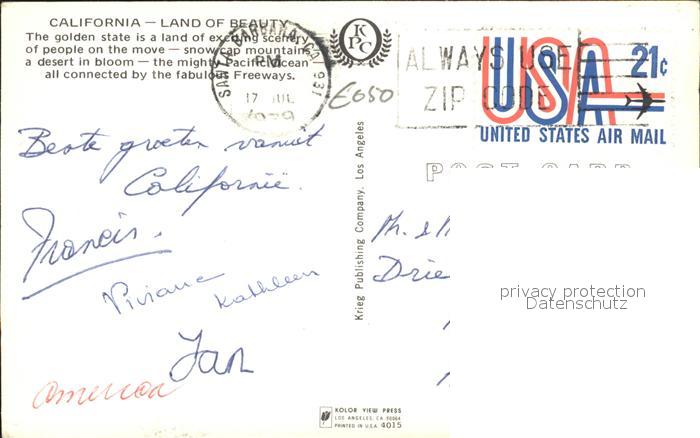 CALIFORNIA — LAND OF BEAUTY
The golden state is a land of exciting scenery
of people on the move — snow cap mountains
a desert in bloom — the mighty Pacific Ocean
all connected by the fabulous Freeways.
KPC
SANTA BARBARA, CA 931
PM
17 JUL
€050
ALWAYS USE
ZIP CODE
USA
21¢
UNITED STATES AIR MAIL
POST CARD
Beste groeten vanuit
Californië.
Francis.
Viviane
Kathleen
Jan
America
Krieg Publishing Company, Los Angeles
M. &
Drie
privacy protection
Datenschutz
KOLOR VIEW PRESS
LOS ANGELES, CA. 90064
PRINTED IN U.S.A. 4015